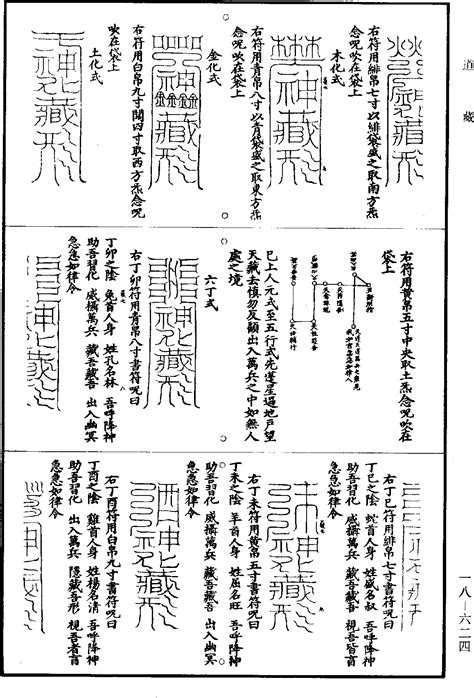 道藏
右符用緋帛七寸以緋袋盛之取南方炁
念呪吹在袋上
木化式
右符用青帛八寸以青袋盛之取東方炁
念呪吹在袋上
金化式
右符用白帛九寸闊四寸取西方炁念呪
吹在袋上
土化式
右符用黄帛五寸中央取土炁念呪吹在
袋上
已上人元式至五行式先逢星遍地戸望
天藏去慎勿反顧出入萬兵之中如無人
處之境
六丁式
右丁卯符用青帛八寸書符呪曰
丁卯之陰 兔首人身 姓孔名林 吾呼降神
助吾習化 威攝萬兵 藏吾藏吾 出入幽冥
急急如律令
右丁巳符用緋帛七寸書符呪曰
丁巳之陰 蛇首人身 姓戚名叔 吾呼降神
助吾習化 威攝萬兵 藏吾藏吾 視吾皆盲
急急如律令
右丁未符用黄帛五寸書符呪曰
丁未之陰 羊首人身 姓屈名旺 吾呼降神
助吾習化 威攝萬兵 藏吾藏吾 出入幽冥
急急如律令
右丁酉符用白帛九寸書符呪曰
丁酉之陰 雞首人身 姓楊名清 吾呼降神
助吾習化 出入萬兵 隱藏吾形 視吾者盲
急急如律令
一八—六二四